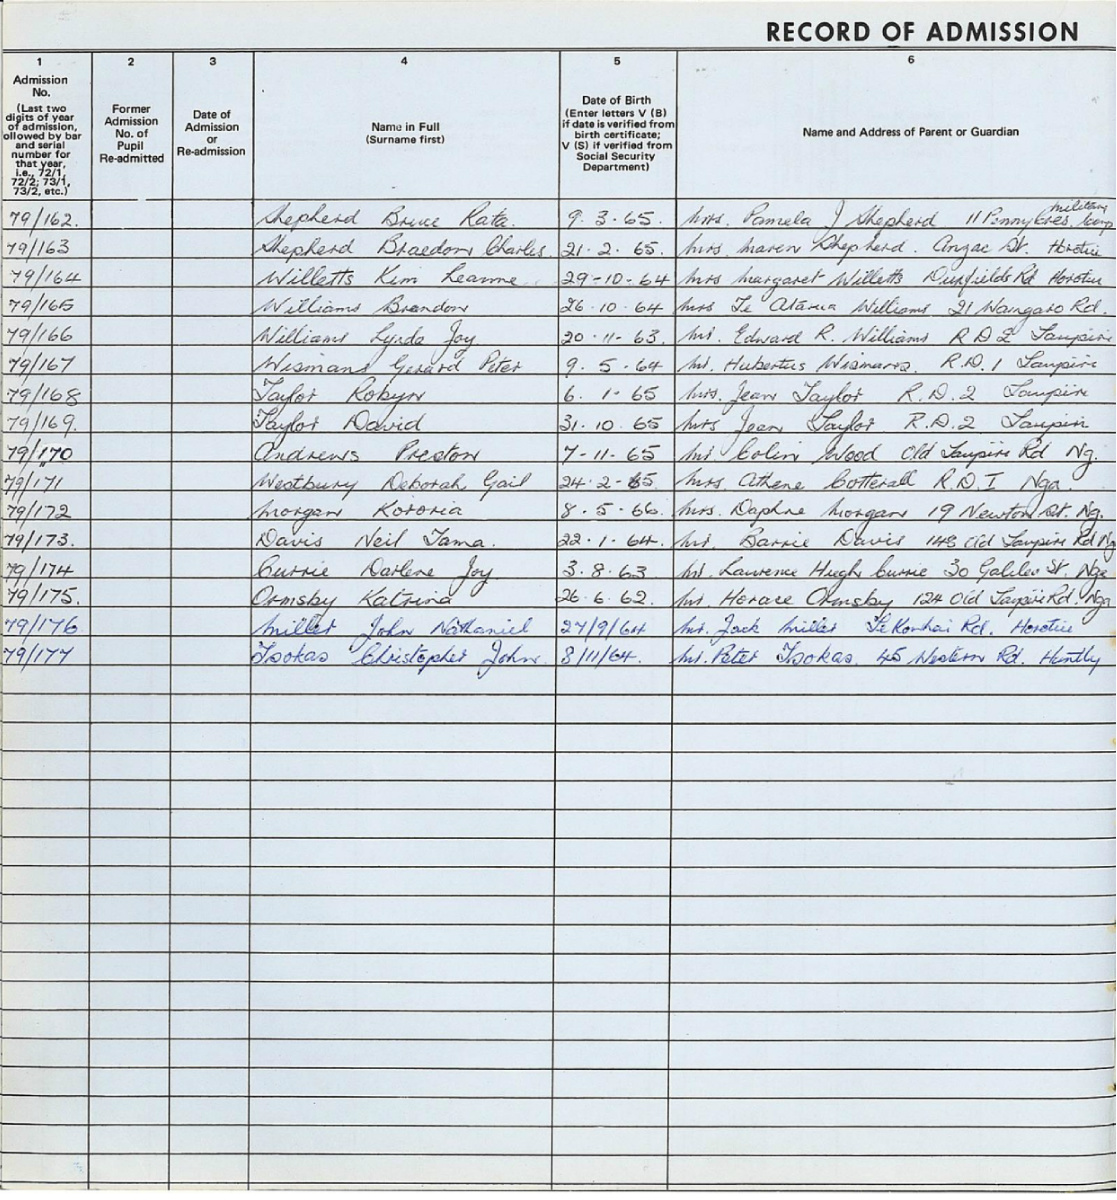 RECORD OF ADMISSION
1 2 3 4 5 6
Admission No. (Last two digits of year of admission, ollowed by bar and serial number for that year, i.e., 72/1, 72/2; 73/1, 73/2, etc.)
Former Admission No. of Pupil Re-admitted
Date of Admission or Re-admission
Name in Full (Surname first)
Date of Birth (Enter letters V (B) if date is verified from birth certificate; V (S) if verified from Social Security Department)
Name and Address of Parent or Guardian
79/162. Shepherd Bruce Rata. 9.3.65. Mrs. Pamela J Shepherd 11 Penny Cres. Military Camp
79/163 Shepherd Braedon Charles. 21.2.65. Mrs Maren Shepherd. Anzac St. Horotiu
79/164 Willetts Kim Leanne 29-10-64 Mrs Margaret Willetts Rd Horotiu
79/165 Williams Brandon 26.10.64 Mrs Te Atarua Williams 21 Waingaro Rd.
79/166 Williams Lynda Joy 20-11-63. Mr. Edward R. Williams R D 2 Taupiri
79/167 Wismans Gerard Peter 9.5.64 Mr. Hubertus Wismans. R.D.1 Taupiri
79/168 Taylor Robyn 6.1.65 Mrs. Jean Taylor R.D.2 Taupiri
79/169. Taylor David 31.10.65 Mrs Jean Taylor R.D.2 Taupiri
79/170 Andrews Preston 7-11-65 Mr. Colin Wood Old Taupiri Rd Ng.
79/171 Westbury Deborah Gail 24.2-65. Mrs. Athene Cotterall R.D.I Nga.
79/172 Morgan Kororia 8.5.66. Mrs. Daphne Morgan 19 Newton St. Ng.
79/173. Davis Neil Tama. 22.1.64. Mr. Barrie Davis 148 Old Taupiri Rd Ng
79/174 Currie Darlene Joy 3.8.63 Mr. Lawrence Hugh Currie 30 Galileo St. Nga
79/175. Ormsby Katrina 26.6.62. Mr. Horace Ormsby 124 Old Taupiri Rd. Nga
79/176 Miller John Nathaniel 27/9/64 Mr. Jack Miller Te Kowhai Rd. Horotiu
79/177 Tsokas Christopher John. 8/11/64. Mr. Peter Tsokas. 45 Western Rd. Huntly